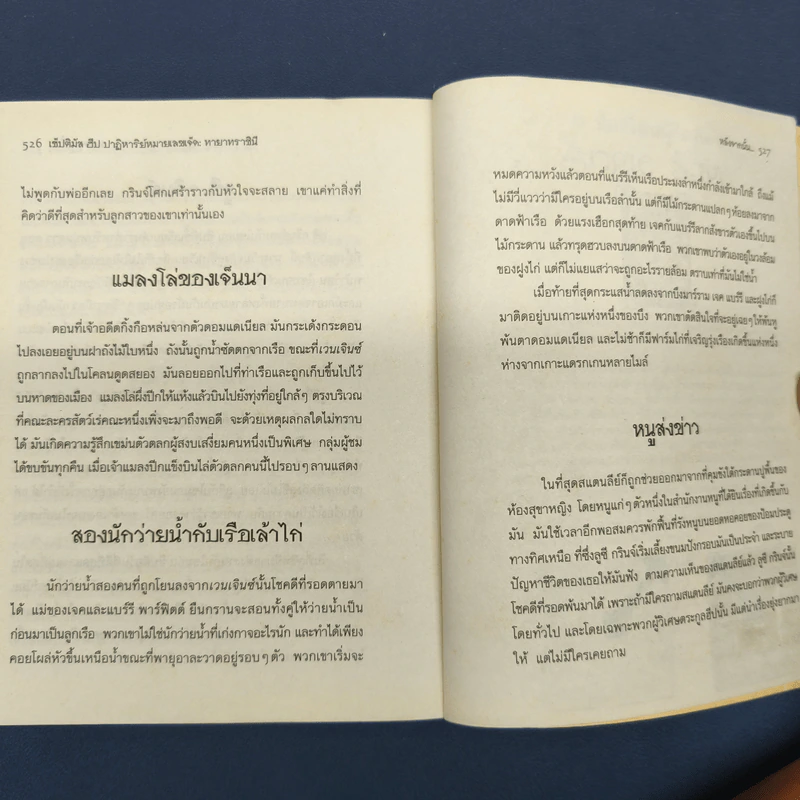 526 เซ็ปติมัส ฮีป ปาฏิหาริย์หมายเลขเจ็ด: ทายาทราชินี
ไม่พูดกับพ่ออีกเลย กรินจ์โศกเศร้าราวกับหัวใจจะสลาย เขาแค่ทำสิ่งที่
คิดว่าดีที่สุดสำหรับลูกสาวของเขาเท่านั้นเอง
แมลงโล่ของเจ็นนา
ตอนที่เจ้าอดีตกิ้งกือหล่นจากตัวดอมแดเนียล มันกระเด้งกระดอน
ไปลงเอยอยู่บนฝาถังไม้ใบหนึ่ง ถังนั้นถูกน้ำซัดตกจากเรือ ขณะที่เวนเจินซ์
ถูกลากลงไปในโคลนดูดสยอง มันลอยออกไปที่ท่าเรือและถูกเก็บขึ้นไปไว้
บนหาดของเมือง แมลงโล่ผึ่งปีกให้แห้งแล้วบินไปยังทุ่งที่อยู่ใกล้ๆ ตรงบริเวณ
ที่คณะละครสัตว์เร่คณะหนึ่งเพิ่งจะมาถึงพอดี จะด้วยเหตุผลกลใดไม่ทราบ
ได้ มันเกิดความรู้สึกเขม่นตัวตลกผู้สงบเสงี่ยมคนหนึ่งเป็นพิเศษ กลุ่มผู้ชม
ได้ขบขันทุกคืน เมื่อเจ้าแมลงปีกแข็งบินไล่ตัวตลกคนนี้ไปรอบๆ ลานแสดง
สองนักว่ายน้ำกับเรือเล้าไก่
นักว่ายน้ำสองคนที่ถูกโยนลงจากเวนเจินซ์นั้นโชคดีที่รอดตายมา
ได้ แม่ของเจคและแบร์รี พาร์ฟิตต์ ยืนกรานจะสอนทั้งคู่ให้ว่ายน้ำเป็น
ก่อนมาเป็นลูกเรือ พวกเขาไม่ใช่นักว่ายน้ำที่เก่งกาจอะไรนัก และทำได้เพียง
คอยโผล่หัวขึ้นเหนือน้ำขณะที่พายุอาละวาดอยู่รอบๆ ตัว พวกเขาเริ่มจะ
หลังจากนั้น... 527
หมดความหวังแล้วตอนที่แบร์รีเห็นเรือประมงลำหนึ่งกำลังเข้ามาใกล้ ถึงแม้
ไม่มีวี่แววว่ามีใครอยู่บนเรือลำนั้น แต่ก็มีไม้กระดานแปลกๆ ห้อยลงมาจาก
ดาดฟ้าเรือ ด้วยแรงเฮือกสุดท้าย เจคกับแบร์รีลากสังขารตัวเองขึ้นไปบน
ไม้กระดาน แล้วทรุดฮวบลงบนดาดฟ้าเรือ พวกเขาพบว่าตัวเองอยู่ในวงล้อม
ของฝูงไก่ แต่ก็ไม่แยแสว่าจะถูกอะไรรายล้อม ตราบเท่าที่มันไม่ใช่น้ำ
เมื่อท้ายที่สุดกระแสน้ำลดลงจากบึงมาร์ราม เจค แบร์รี และฝูงไก่ก็
มาติดอยู่บนเกาะแห่งหนึ่งของบึง พวกเขาตัดสินใจที่จะอยู่เฉยๆ ให้พ้นหู
พ้นตาดอมแดเนียล และไม่ช้าก็มีฟาร์มไก่ที่เจริญรุ่งเรืองเกิดขึ้นแห่งหนึ่ง
ห่างจากเกาะแดรกเกนหลายไมล์
หนูส่งข่าว
ในที่สุดสแตนลีย์ก็ถูกช่วยออกมาจากที่คุมขังใต้กระดานปูพื้นของ
ห้องสุขาหญิง โดยหนูแก่ๆ ตัวหนึ่งในสำนักงานหนูที่ได้ยินเรื่องที่เกิดขึ้นกับ
มัน มันใช้เวลาอีกพอสมควรพักฟื้นที่รังหนูบนยอดหอคอยของป้อมประตู
ทางทิศเหนือ ที่ซึ่งลูซี กรินจ์เริ่มเลี้ยงขนมปังกรอบมันเป็นประจำ และระบาย
ปัญหาชีวิตของเธอให้มันฟัง ตามความเห็นของสแตนลีย์แล้ว ลูซี กรินจ์นั้น
โชคดีที่รอดพ้นมาได้ เพราะถ้ามีใครถามสแตนลีย์ มันคงจะบอกว่าพวกผู้วิเศษ
โดยทั่วไป และโดยเฉพาะพวกผู้วิเศษตระกูลฮีปนั้น มีแต่นำเรื่องยุ่งยากมา
ให้ แต่ไม่มีใครเคยถาม